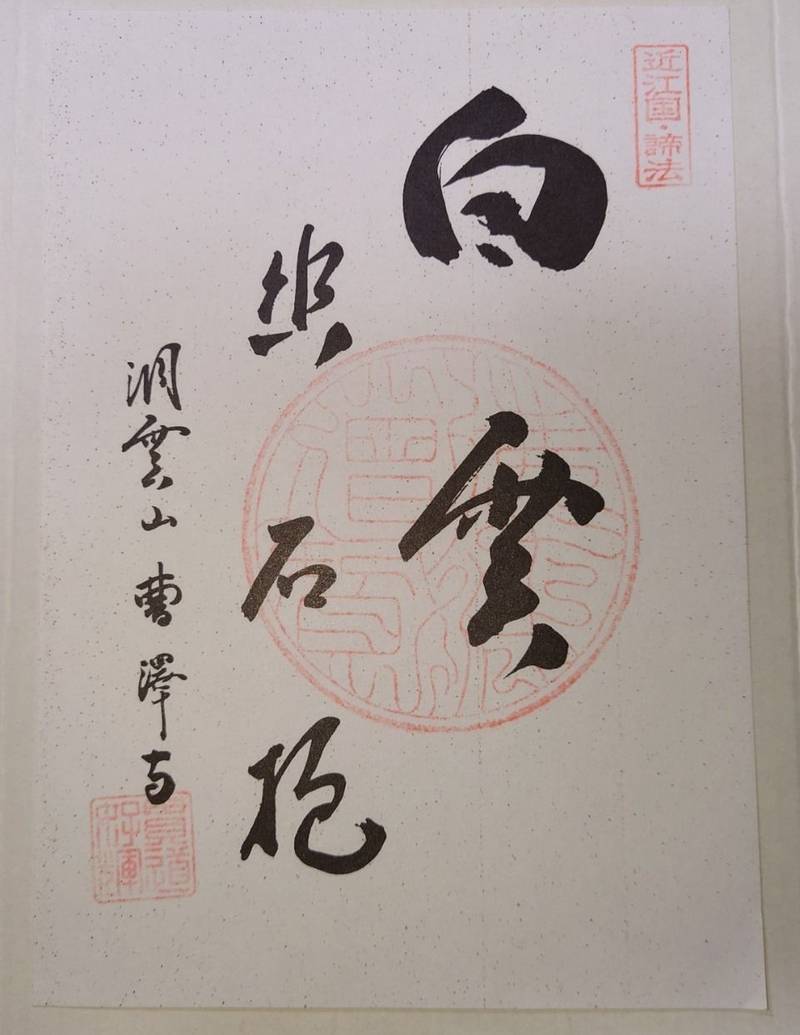 近江国・諦法
白雲
幽石抱
洞雲山 曹澤寺
貫道